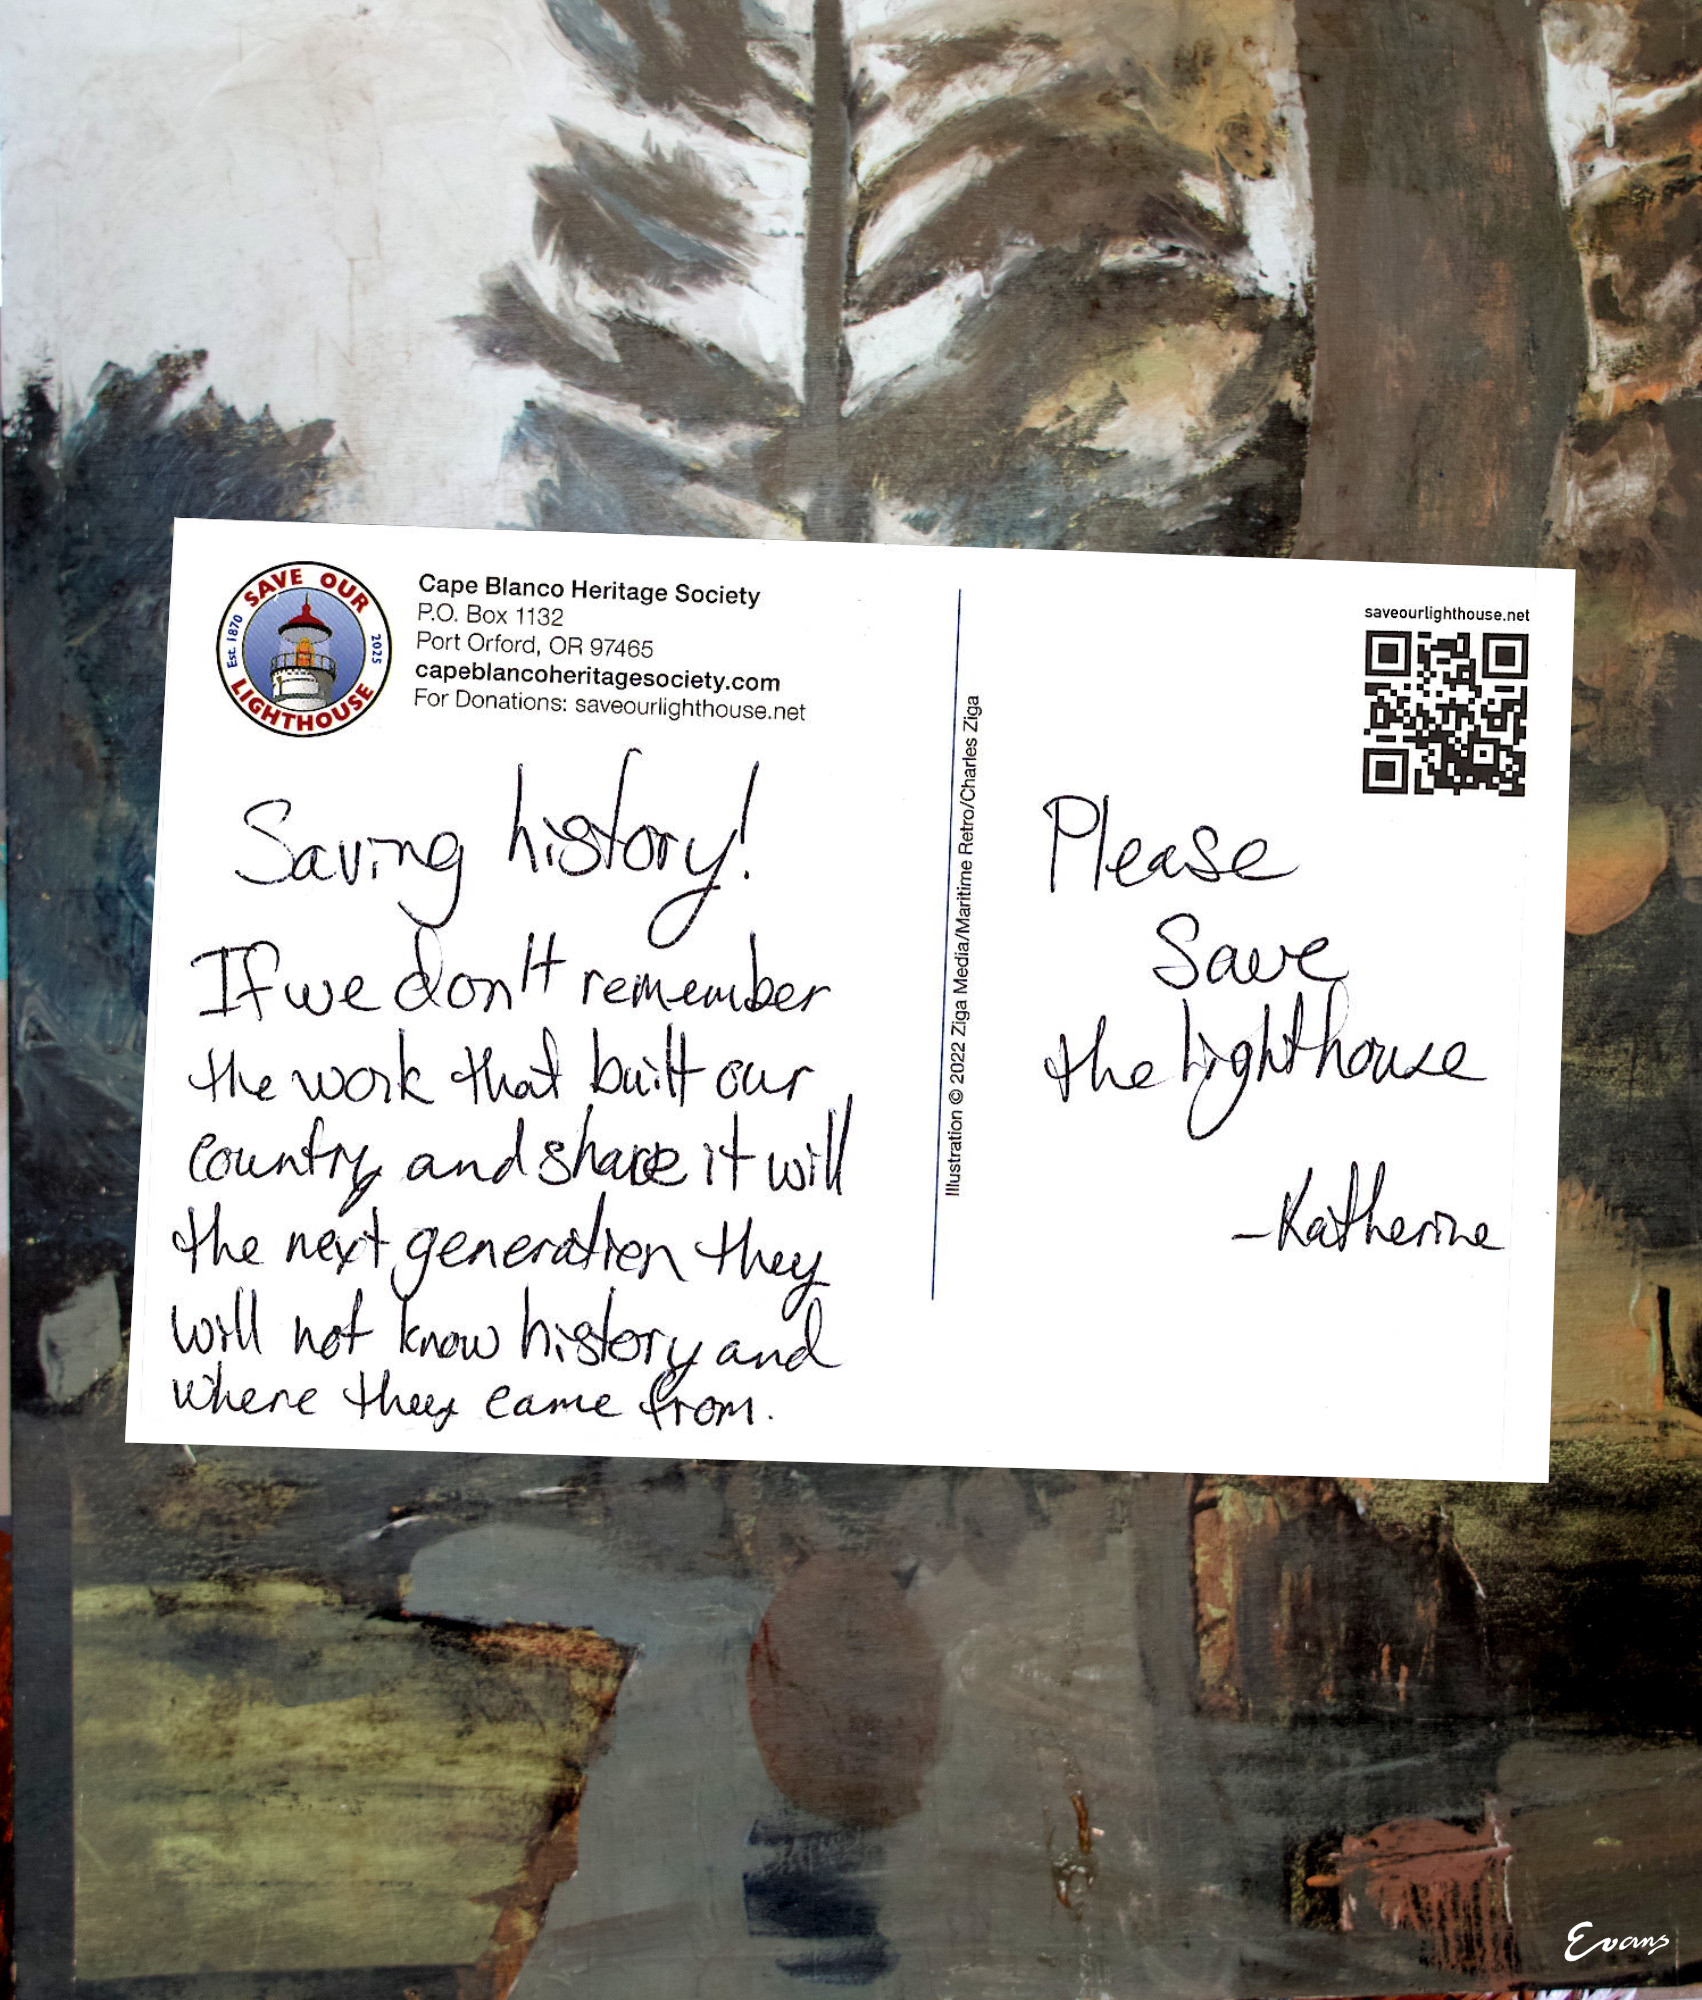 SAVE OUR
LIGHTHOUSE
Est. 1870
2025
Cape Blanco Heritage Society
P.O. Box 1132
Port Orford, OR 97465
capeblancoheritagesociety.com
For Donations: saveourlighthouse.net
Saving history!
If we don't remember
the work that built our
country and share it will
the next generation they
will not know history and
where they came from.
Illustration © 2022 Ziga Media/Maritime Retro/Charles Ziga
saveourlighthouse.net
Please
Save
the lighthouse
-Katherine
Evans